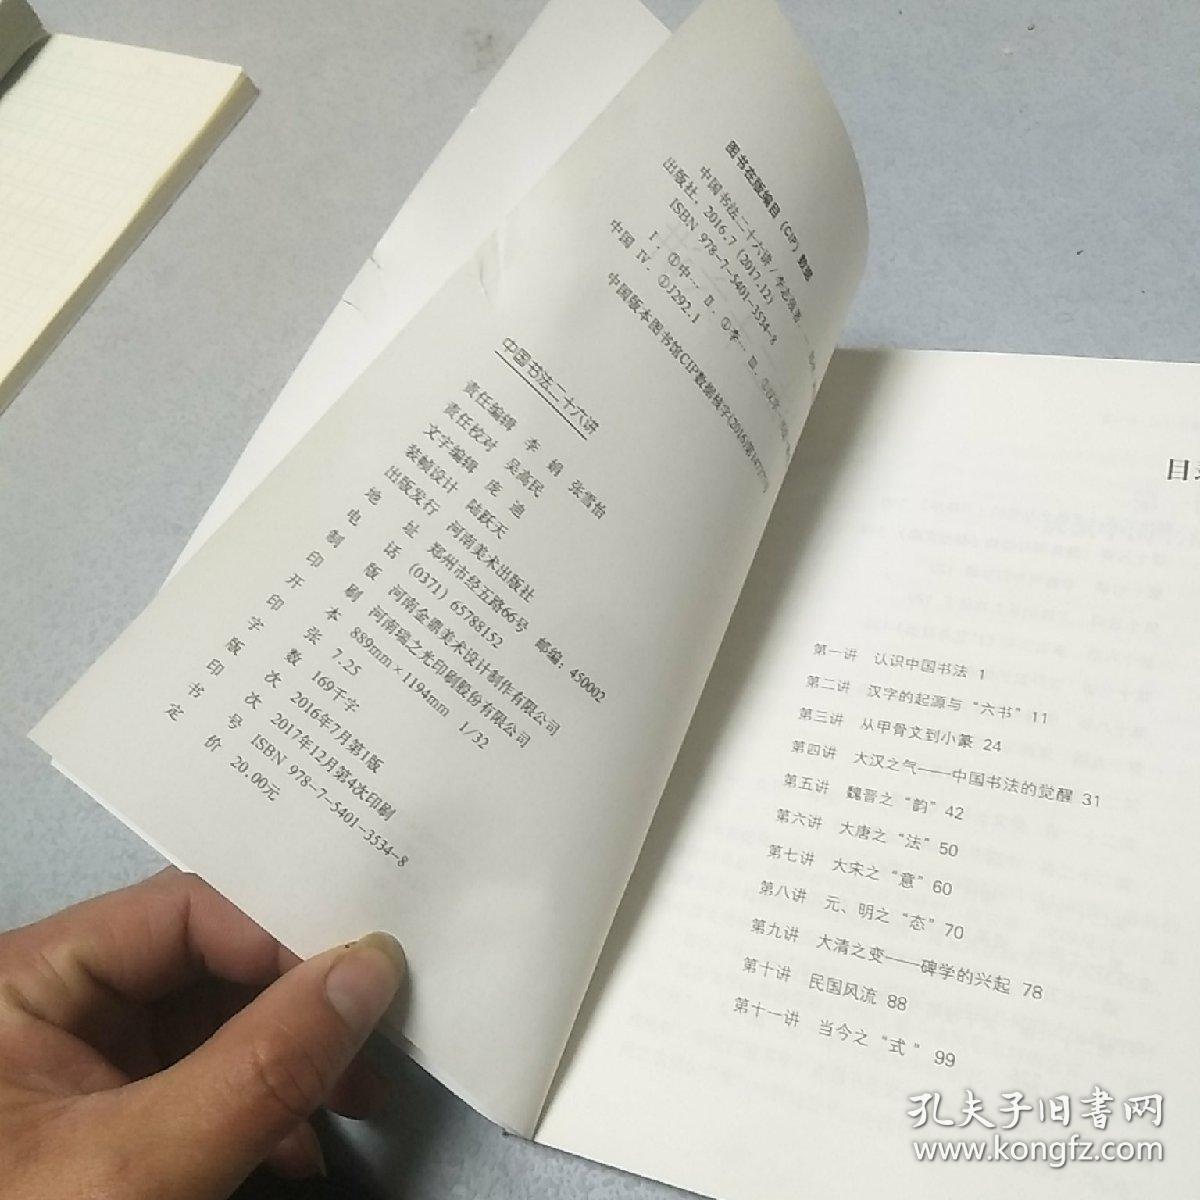 图书在版编目（CIP）数据
中国书法二十六讲/李志强著.
出版社，2016.7（2017.12）
ISBN 978-7-5401-3534-8
Ⅰ.①中… Ⅱ.①李… Ⅲ.①汉字
中国 Ⅳ.①J292.1
中国版本图书馆CIP数据核字(2016)第
中国书法二十六讲
责任编辑 李 娟 张雪怡
责任校对 吴高民
文字编辑 庞 迪
装帧设计 陆跃天
出版发行 河南美术出版社
地 址 郑州市经五路66号 邮编：450002
电 话 (0371) 65788152
制 版 河南金鼎美术设计制作有限公司
印 刷 河南瑞之光印刷股份有限公司
开 本 889mm×1194mm 1/32
印 张 7.25
字 数 169千字
版 次 2016年7月第1版
印 次 2017年12月第4次印刷
书 号 ISBN 978-7-5401-3534-8
定 价 20.00元
目录
第一讲 认识中国书法 1
第二讲 汉字的起源与“六书” 11
第三讲 从甲骨文到小篆 24
第四讲 大汉之气——中国书法的觉醒 31
第五讲 魏晋之“韵” 42
第六讲 大唐之“法” 50
第七讲 大宋之“意” 60
第八讲 元、明之“态” 70
第九讲 大清之变——碑学的兴起 78
第十讲 民国风流 88
第十一讲 当今之“式” 99
孔夫子旧书网
www.kongfz.com